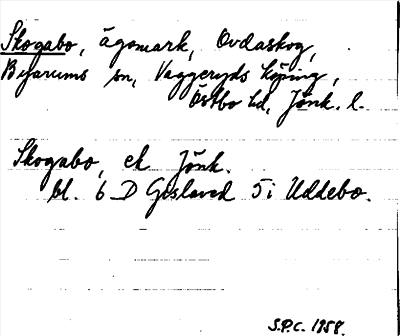 Skogabo, ägomark, Ovdaskog,
Byarums sn, Vaggeryds köping,
Östbo hd, Jönk. l.
Skogabo, ek Jönk.
bl. 6 D Gislaved 5 i Uddebo.
S.P.C. 1958.